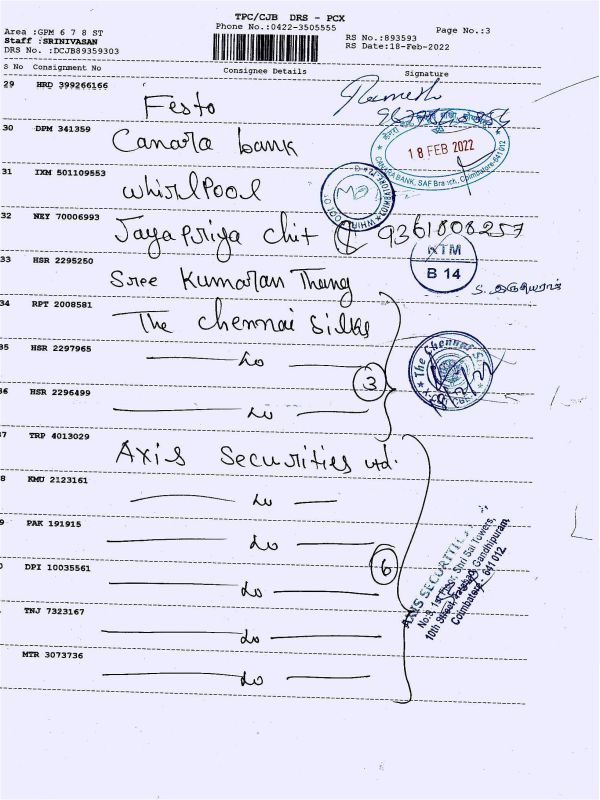 TPC/CJB DRS - PCX
Area :GPM 6 7 8 ST
Phone No.:0422-3505555
Page No.:3
Staff :SRINIVASAN
RS No.:893593
DRS No. :DCJB89359303
RS Date:18-Feb-2022
S No Consignment No Consignee Details Signature
29 HRD 399266166 Festo
Ramesh
30 DPM 341359 Canara bank
CANARA BANK, SAF Branch, Coimbatore-641012
18 FEB 2022
31 IXM 501109553 Whirlpool
32 NEY 70006993 Jayapriya chit 9361808257
33 HSR 2295250 Sree Kumaran Thang
KTM
B 14
34 RPT 2008581 The Chennai Silks
35 HSR 2297965 Do
3
The Chennai
36 HSR 2296499 Do
37 TRP 4013029 Axis Securities Ltd.
8 KMU 2123161 Do
9 PAK 191915 Do
6
AXIS SECURITI
No:9, 1st Floor, Shri Sai Towers,
10th Street, Gandhipuram
Coimbatore - 641 012
0 DPI 10035561 Do
TNJ 7323167 Do
MTR 3073736 Do